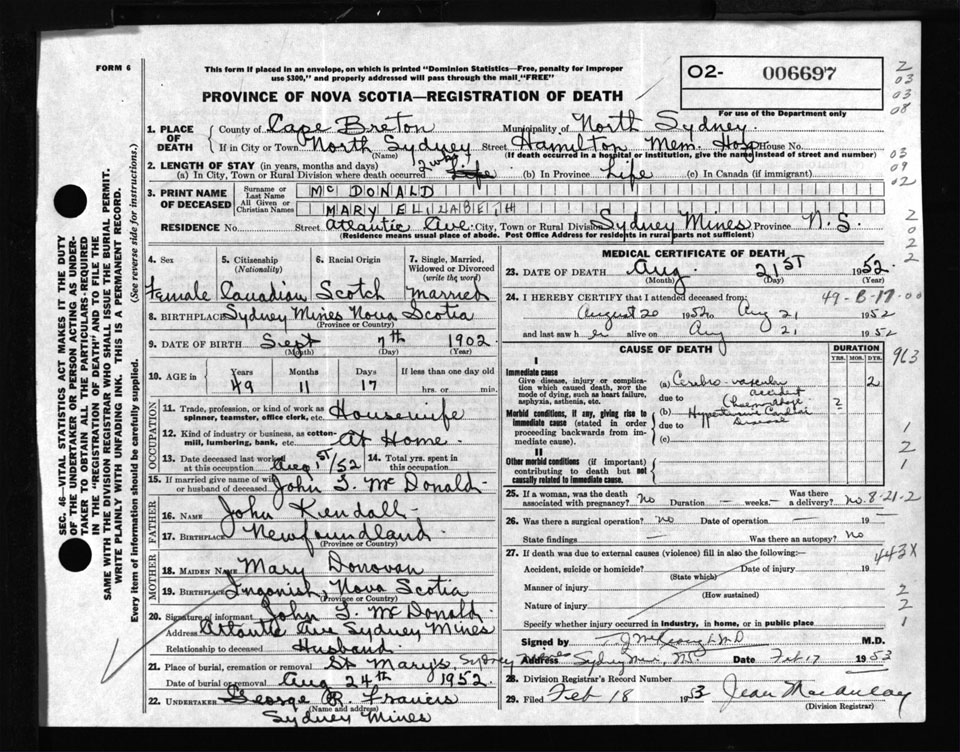 FORM 6
This form if placed in an envelope, on which is printed "Dominion Statistics—Free, penalty for improper
use $300," and properly addressed will pass through the mail "FREE"
O2- 006697
For use of the Department only
PROVINCE OF NOVA SCOTIA—REGISTRATION OF DEATH
1. PLACE OF DEATH
County of Cape Breton Municipality of North Sydney
If in City or Town North Sydney Street Hamilton Mem. Hosp House No.
(Name) (If death occurred in a hospital or institution, give the name instead of street and number)
2. LENGTH OF STAY (in years, months and days)
(a) In City, Town or Rural Division where death occurred 2 wks. Life (b) In Province Life (c) In Canada (if immigrant)
3. PRINT NAME OF DECEASED
Surname or Last Name McDONALD
All Given or Christian Names MARY ELIZABETH
RESIDENCE No. Street Atlantic Ave. City, Town or Rural Division Sydney Mines Province N.S.
(Residence means usual place of abode. Post Office Address for residents in rural parts not sufficient)
4. Sex
Female
5. Citizenship (Nationality)
Canadian
6. Racial Origin
Scotch
7. Single, Married, Widowed or Divorced (write the word)
Married
8. BIRTHPLACE Sydney Mines Nova Scotia
(Province or Country)
9. DATE OF BIRTH Sept 7th 1902
(Month) (Day) (Year)
10. AGE in Years Months Days If less than one day old
49 11 17 hrs. or min.
OCCUPATION
11. Trade, profession, or kind of work as spinner, teamster, office clerk, etc. Housewife
12. Kind of industry or business, as cotton-mill, lumbering, bank, etc. At Home.
13. Date deceased last worked at this occupation Aug 1st/52
14. Total yrs. spent in this occupation
15. If married give name of wife or husband of deceased John T. McDonald
FATHER
16. NAME John Kendall
17. BIRTHPLACE Newfoundland
(Province or Country)
MOTHER
18. MAIDEN NAME Mary Donovan
19. BIRTHPLACE Ingonish, Nova Scotia
(Province or Country)
20. Signature of informant John T. McDonald
Address Atlantic Ave Sydney Mines
Relationship to deceased Husband.
21. Place of burial, cremation or removal St Mary's, Sydney Mines
Date of burial or removal Aug 24th 1952
22. UNDERTAKER George R. Francis
(Name and address)
Sydney Mines
MEDICAL CERTIFICATE OF DEATH
23. DATE OF DEATH Aug 21st 1952.
(Month) (Day) (Year)
24. I HEREBY CERTIFY that I attended deceased from: 49-8-17-00
August 20 1952 to Aug 21 1952
and last saw her alive on Aug 21 1952
CAUSE OF DEATH
DURATION
YRS. MOS. DYS.
963
I
Immediate cause
Give disease, injury or complication which caused death, NOT the mode of dying, such as heart failure, asphyxia, asthenia, etc.
(a) Cerebro-vascular accident 2
due to
Morbid conditions, if any, giving rise to immediate cause (stated in order proceeding backwards from immediate cause).
(b) Hypertensive Cardiac Disease 2
due to
(c)
II
Other morbid conditions (if important) contributing to death but not causally related to immediate cause.
1
2
1
25. If a woman, was the death associated with pregnancy? no Duration — weeks — Was there a delivery? no. 8-21-2
26. Was there a surgical operation? no Date of operation — 19
State findings — Was there an autopsy? No
27. If death was due to external causes (violence) fill in also the following:— 443X
Accident, suicide or homicide? Date of injury 19
(State which)
Manner of injury
(How sustained)
Nature of injury
Specify whether injury occurred in industry, in home, or in public place
2
2
1
Signed by M.D.
Address Sydney Mines, NS Date Feb 17 1953
28. Division Registrar's Record Number
29. Filed Feb 18 1953 Jean MacAulay
(Division Registrar)
2
03
03
08
03
09
02
2
0
2
2
SEC. 46—VITAL STATISTICS ACT MAKES IT THE DUTY
OF THE UNDERTAKER OR PERSON ACTING AS UNDER-
TAKER TO OBTAIN ALL THE PARTICULARS REQUIRED
IN THE "REGISTRATION OF DEATH" AND TO FILE THE
SAME WITH THE DIVISION REGISTRAR WHO SHALL ISSUE THE BURIAL PERMIT.
WRITE PLAINLY WITH UNFADING INK. THIS IS A PERMANENT RECORD.
Every item of information should be carefully supplied. (See reverse side for instructions.)